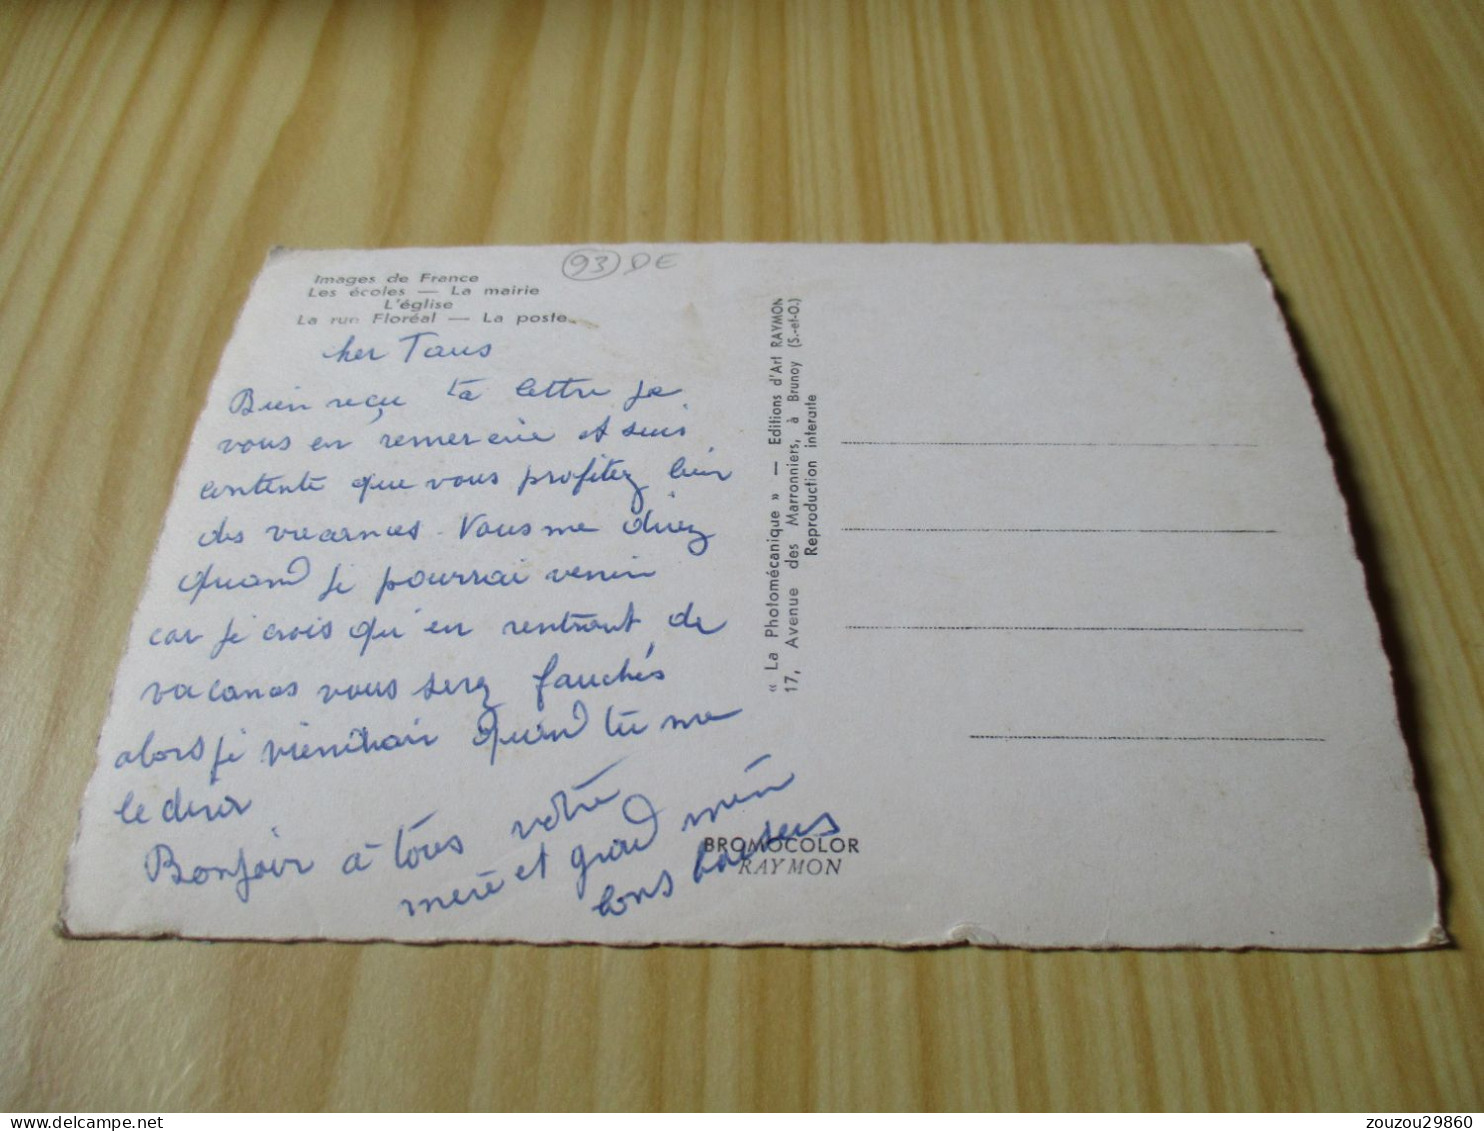 Images de France
Les écoles — La mairie
L'église
La rue Floréal — La poste
93 DE
cher Tous
Bien reçu ta lettre je
vous en remercie et suis
contente que vous profitez bien
des vacances. Vous me direz
quand je pourrai venir
car je crois qu'en rentrant de
vacances vous serez fauchés
alors je viendrai quand tu me
le diras
Bonjour à tous votre
mère et grand mère
bons baisers
« La Photomécanique » — Editions d'Art RAYMON
17, Avenue des Marronniers, à Brunoy (S.-et-O.)
Reproduction interdite
BROMOCOLOR
RAYMON
zouzou29860